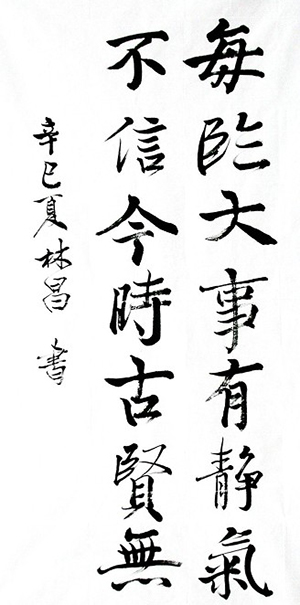 每臨大事有静氣
不信今時古賢無
辛巳夏林昌書